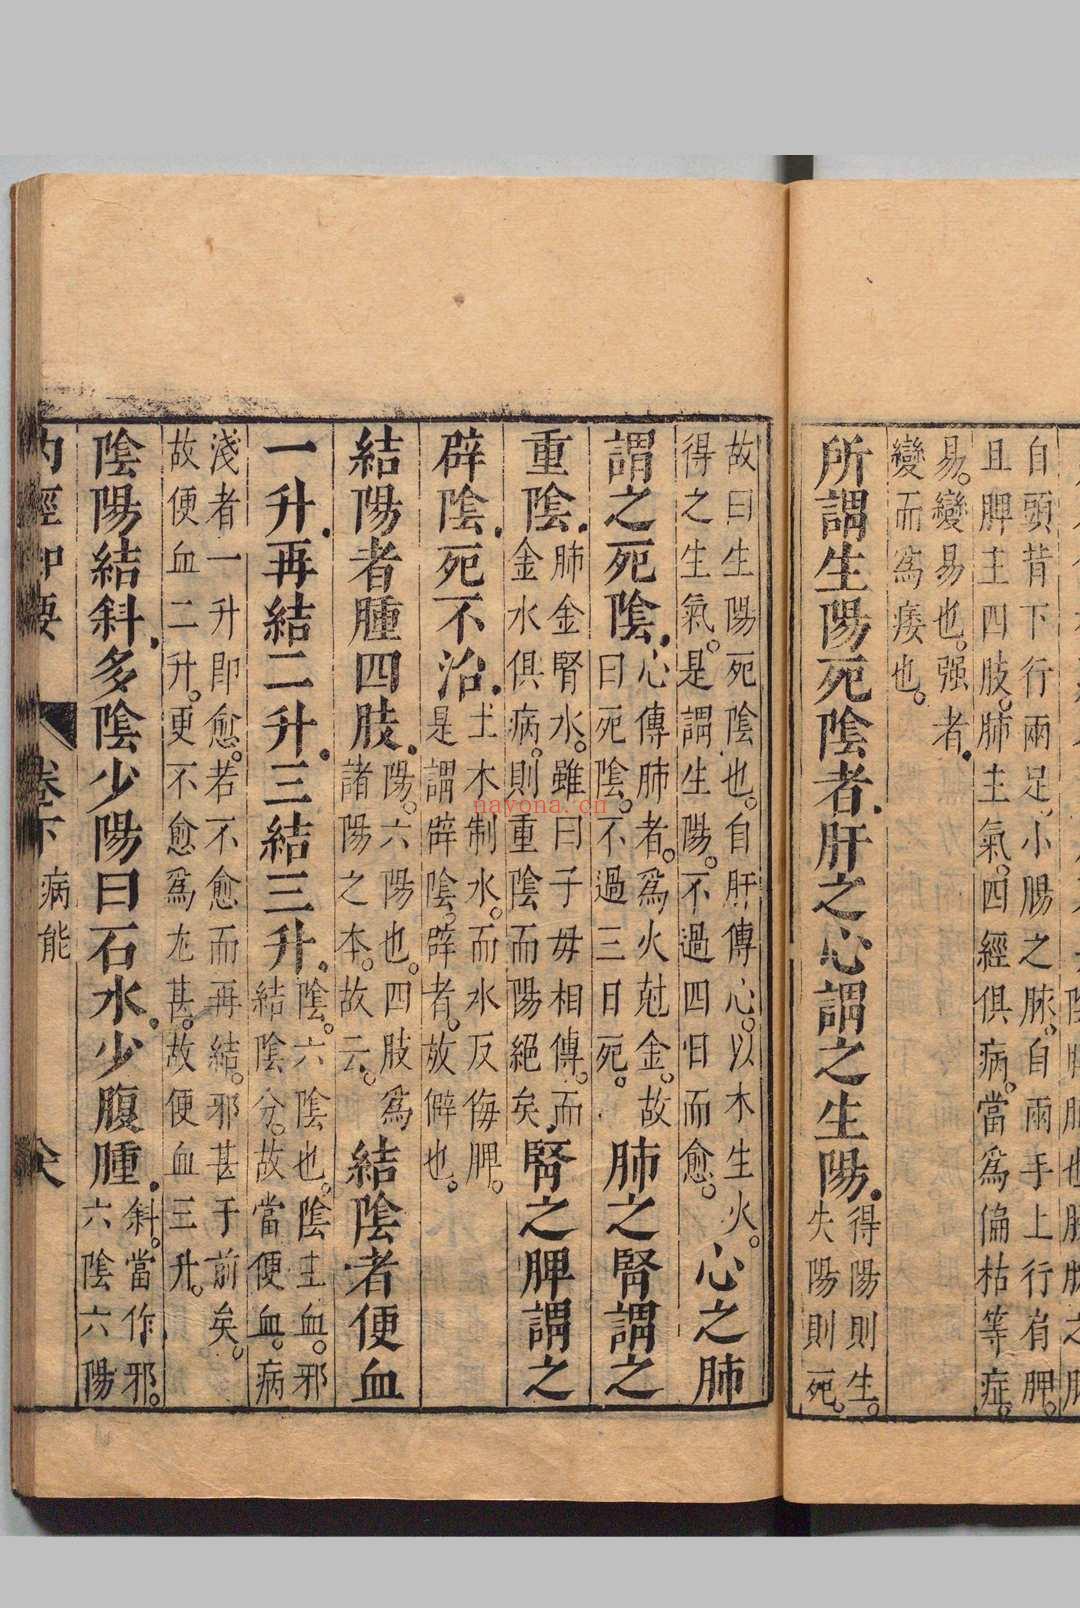 自頭背下行兩足。小腸之脉。自兩手上行有脾。
且脾主四肢。肺主氣。四經俱病。當爲偏枯等症。
易。變易也。强者。
變而爲痿也。
所謂生陽死陰者。肝之心謂之生陽。
得陽則生。
失陽則死。
故曰生陽死陰也。自肝傳心。以木生火。
得之生氣。是謂生陽。不過四日而愈。
心之肺
謂之死陰。
心傳肺者。爲火尅金。故
曰死陰。不過三日死。
肺之腎謂之
重陰。
肺金腎水。雖曰子母相傳。而
金水俱病。則重陰而陽絕矣。
腎之脾謂之
辟陰。死不治。
土木制水。而水反侮脾。
是謂辟陰。辟者。放僻也。
結陽者腫四肢。
陽。六陽也。四肢爲
諸陽之本。故云。
結陰者便血
一升。再結二升。三結三升。
陰。六陰也。陰主血。邪
結陰分。故當便血。病
淺者一升即愈。若不愈而再結。邪甚于前矣。
故便血二升。更不愈爲尤甚。故便血三升。
陰陽結斜。多陰少陽曰石水。少腹腫。
斜。當作邪。
六陰六陽
卷下
病能
nayona.cn